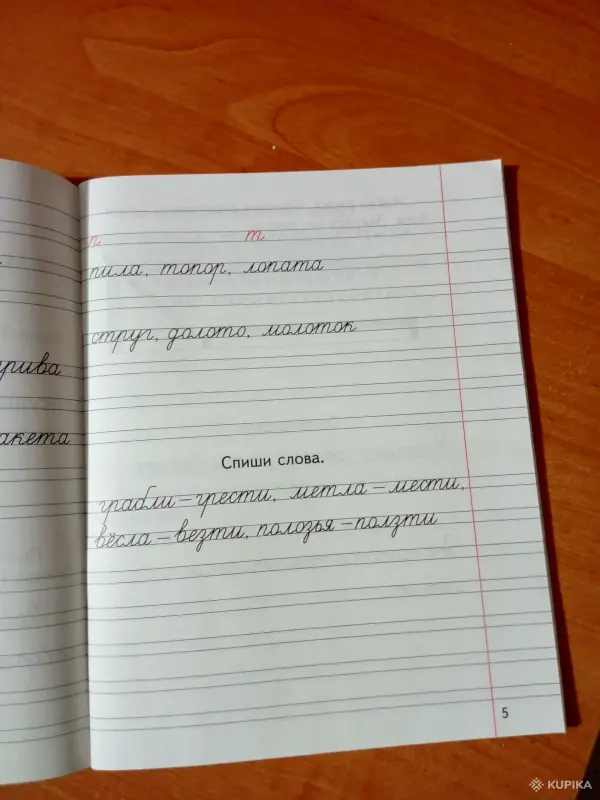 п т
пила, топор, лопата
струг, долото, молоток
грива
Спиши слова.
ракета
грабли – грести, метла – мести,
вёсла – везти, полозья – ползти
5
KUPIKA